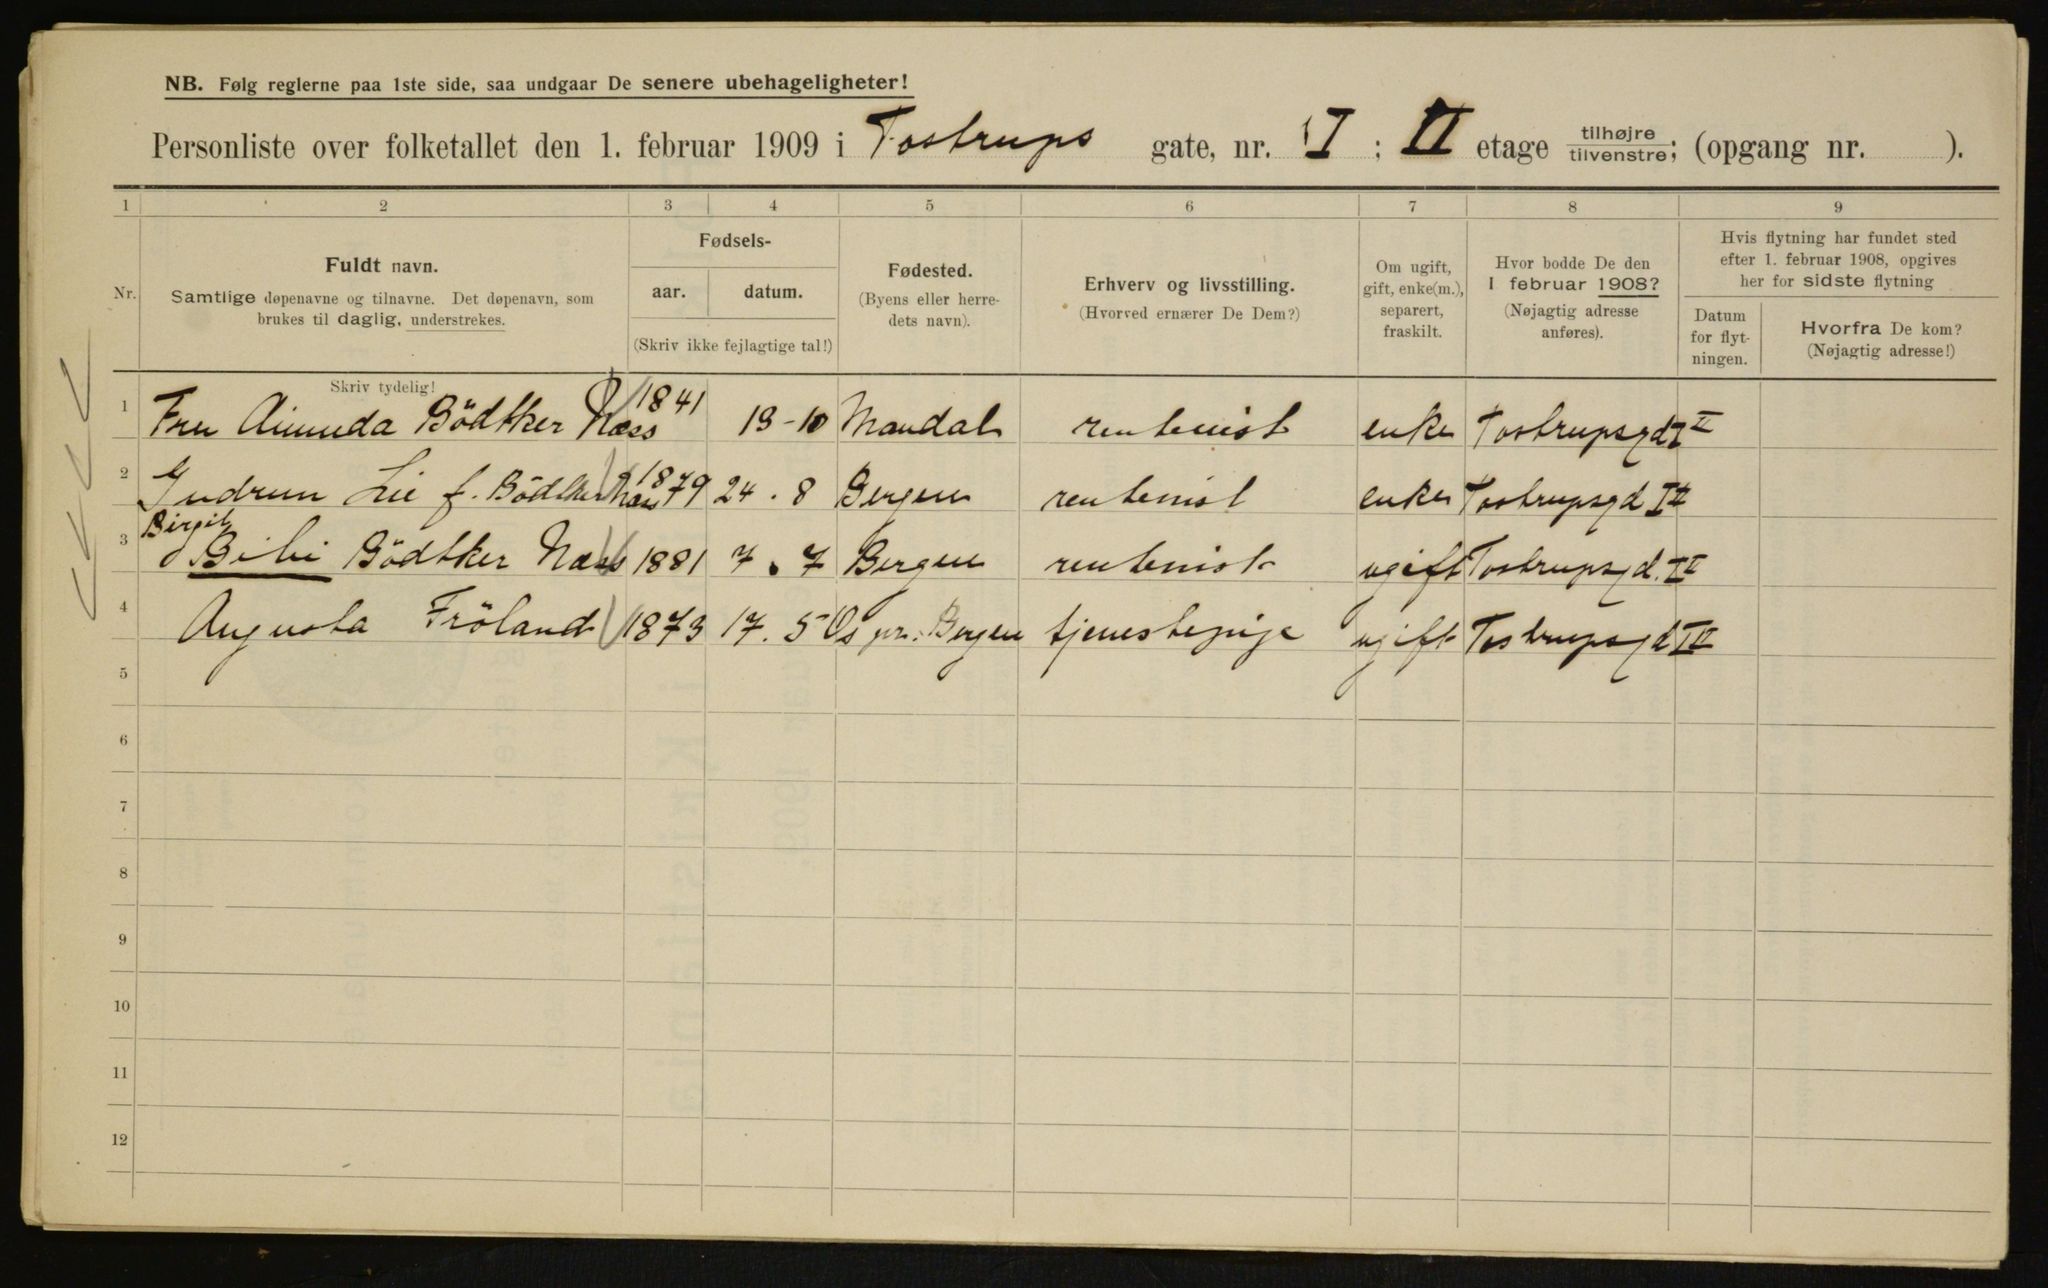 NB. Følg reglerne paa 1ste side, saa undgaar De senere ubehageligheter!
Personliste over folketallet den 1. februar 1909 i Tostrups gate, nr. I ; II etage tilhøjre / tilvenstre; (opgang nr. ).
1 2 3 4 5 6 7 8 9
Nr.
Fuldt navn.
Samtlige døpenavne og tilnavne. Det døpenavn, som
brukes til daglig, understrekes.
Skriv tydelig!
Fødsels-
aar. datum.
(Skriv ikke fejlagtige tal!)
Fødested.
(Byens eller herre-
dets navn).
Erhverv og livsstilling.
(Hvorved ernærer De Dem?)
Om ugift,
gift, enke(m.),
separert,
fraskilt.
Hvor bodde De den
1 februar 1908?
(Nøjagtig adresse
anføres).
Hvis flytning har fundet sted
efter 1. februar 1908, opgives
her for sidste flytning
Datum
for flyt-
ningen.
Hvorfra De kom?
(Nøjagtig adresse!)
1 Fru Bödtker Næss 1841 19-10 Mandal rentenist enke Tostrupsgd I II
2 Gudrun Lie f. Bödtker Næss 1879 24. 8 Bergen rentenist enke Tostrupsgd I II
Birgit
3 Bibi Bödtker Næss 1881 7. 7 Bergen rentenist ugift Tostrupsgd. I II
4 Augusta Fröland 1873 17. 5 Os pr. Bergen tjenestepige ugift Tostrupsgd I II
5
6
7
8
9
10
11
12